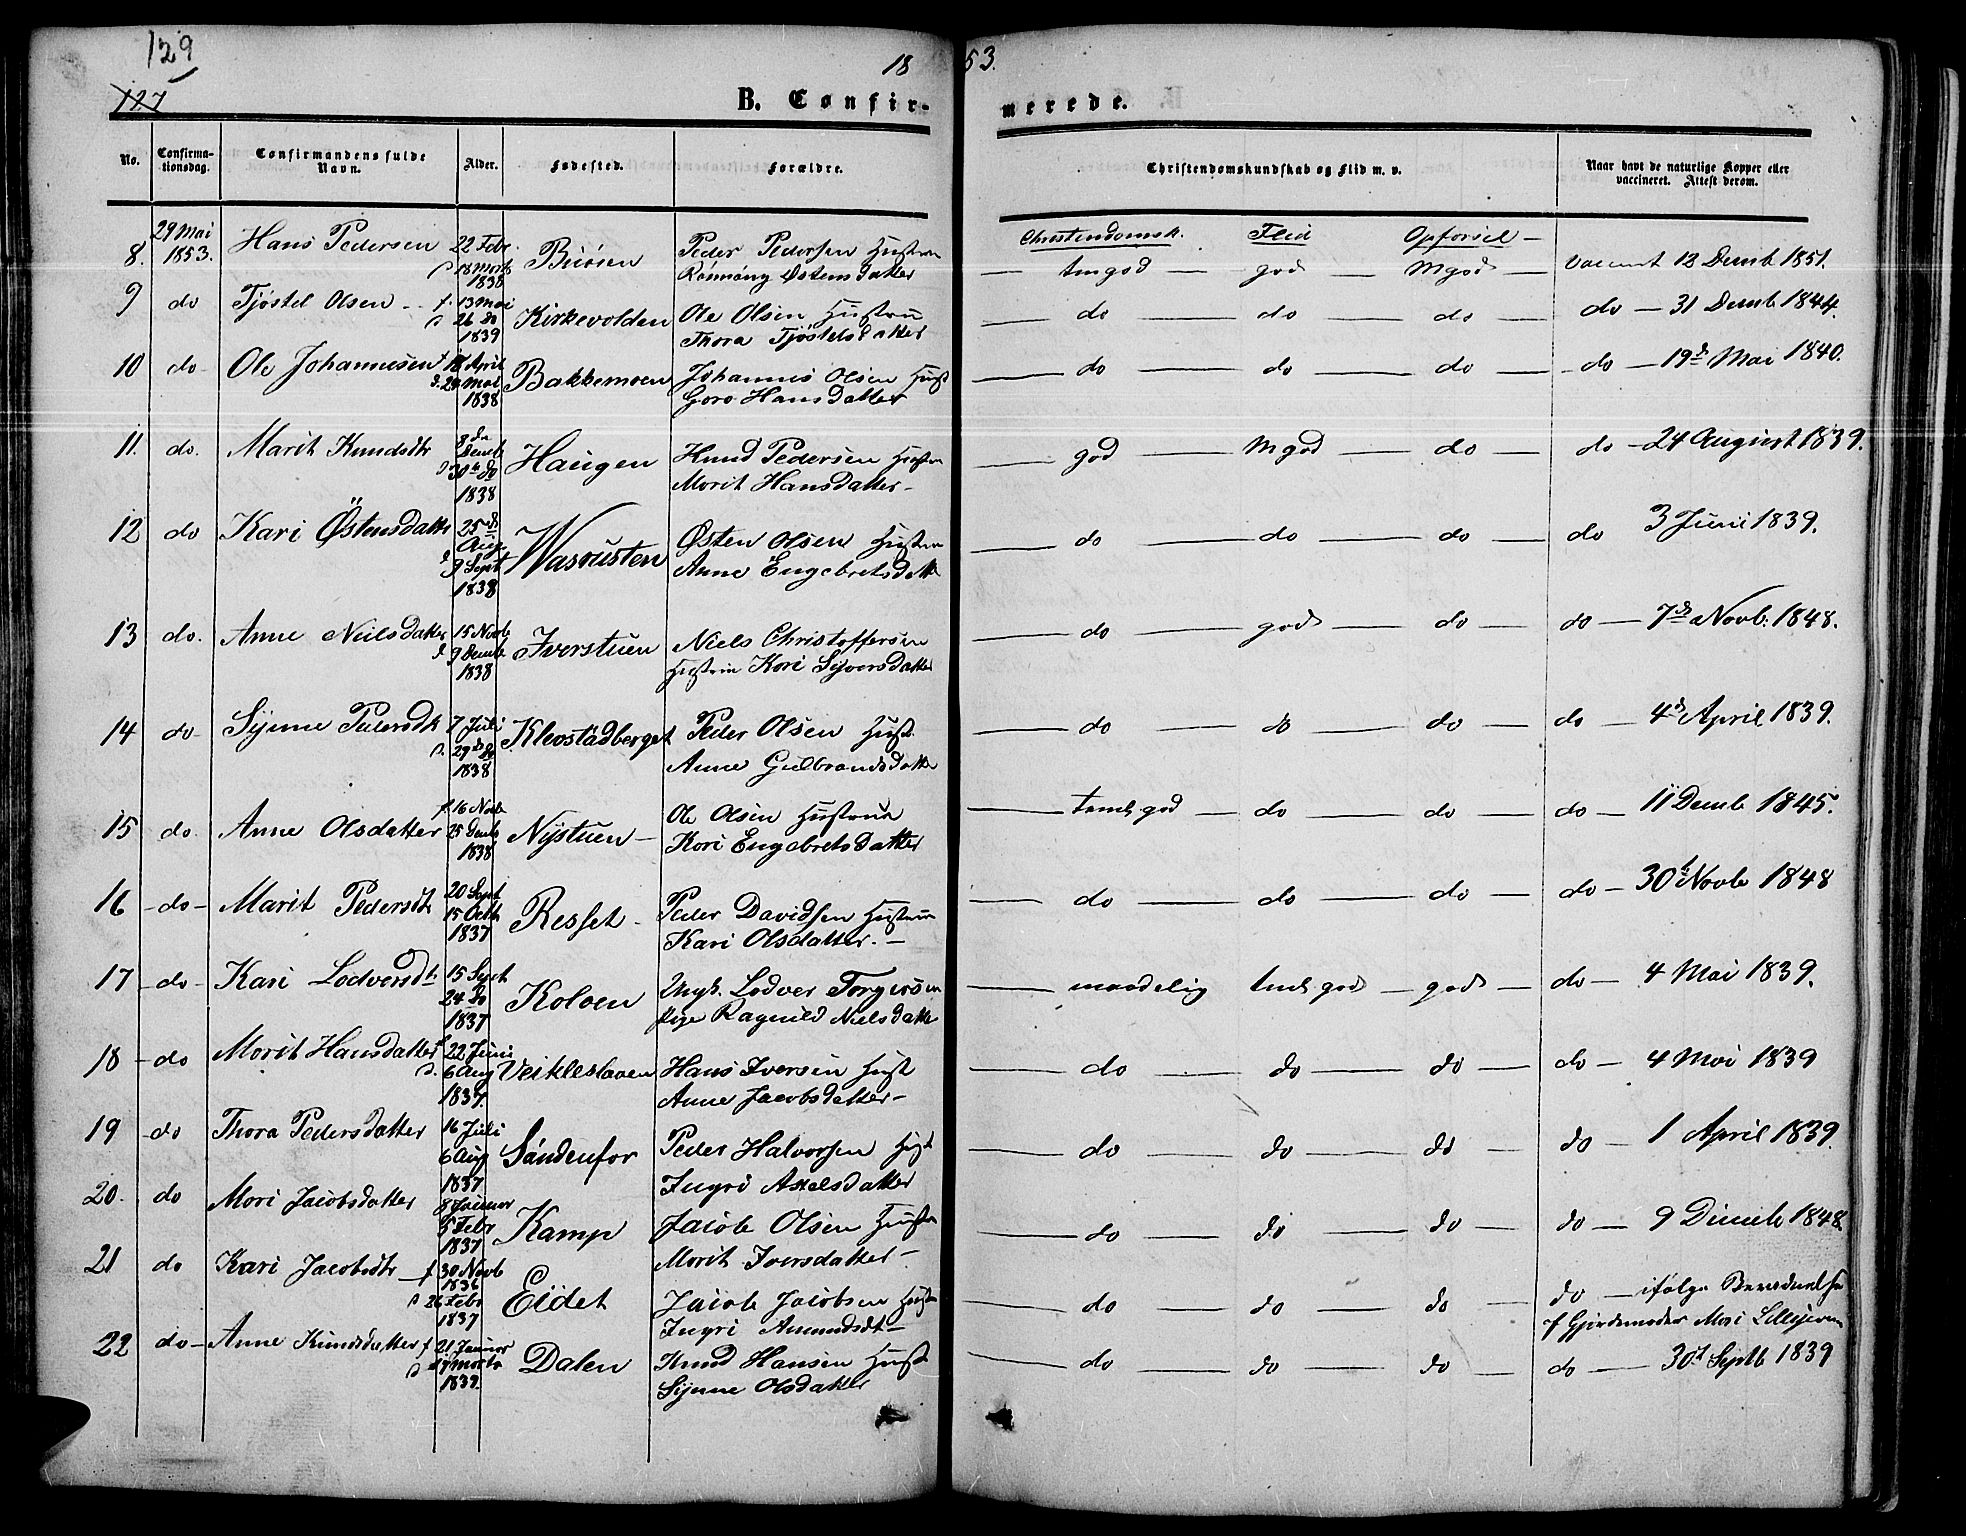 129
127
18 53.
B. Confir- merede.
No. Confirma-tionsdag. Confirmandens fulde Navn. Alder. Fødested. Forældre. Christendomskundskab og Flid m. v. Naar havt de naturlige Kopper eller vaccineret. Attest derom.
29 Mai Hans Pedersen 22 Febr. Peder Pedersen Hustru Christendomsk. Flid Opførsel —
8. 1853. d 18 Marts 1838 Rønnaug Østensdatter — tmgod — god — Mgod — vaccint 12 Decmb 1851.
9 do Tjøstel Olsen f. 13 Mai d 26 do 1839 Kirkevolden Ole Olsen Hustru — do — do — do — do — 31 Decmb 1844.
Thora Tjøstelsdatter
10 do Ole Johannesen f 18 April d. 29 Mai 1838 Bakkemoen Johannes Olsen Hust — do — do — do — do — 19d Mai 1840.
Goro Hansdatter
11. do. Marit Knudsdtr 8 de Decmb d 30te do 1838 Haugen Knud Pedersen Hustru — god — Mgod — do — do — 24 August 1839.
Marit Hansdatter —
12 do Kari Østensdatter 25de Aug d 9 Sept 1838 Østen Olsen Hustru — do — do — do — do 3 Juni 1839.
Anne Engebretsdatter
13 do. Anne Nielsdatter 15 Novb d 9 Decmb 1838 Iverstuen Niels Christoffersen — do — god — do — do — 7de Novb. 1848.
Hustru Kari Syversdatter
14 do Synne Pedersdtr 7 Juli d. 29de do 1838 Kleostadberget Peder Olsen Hust. — do — do — do — do — 4de April 1839.
Anne Gulbrandsdatter
15 do. Anne Olsdatter f. 16 Novb 25 Decmb 1838 Nystuen — Ole Olsen Hustrue — temlgod — do — do — do — 11 Decmb 1845.
Kari Engebretsdatter
16 — do — Marit Pedersdtr 20 Sept 15 Octb 1837 Resset — Peder Davidsen Hustrue — do — do — do — do — 30t Novb 1848
Kari Olsdatter. —
17 — do — Kari Lodversdt 15 Sept 24 do 1837 Kolven Ungk. Lodver Torgersen — maadelig temlgod — god — do — 4 Mai 1839.
Pige Ragnild Nielsdatter
18 — do Marit Hansdatter f 22 Juni d. 6 Aug 1837. Veikleslaaen Hans Iversen Hust — do — do — do — do — 4 Mai 1839
Anne Jacobsdatter —
19 — do Thora Pedersdatter 16 Juli 6 Aug 1837 Søndenfor Peder Halvorsen Hust — do — do — do — do — 1 April 1839.
Ingri Axelsdatter
20. do Mari Jacobsdatter 8 Januar 5 Febr 1837 Kamp Jacob Olsen Hustru — do — do — do — do — 9 Decmb 1848.
Marit Iversdatter —
21 do Kari Jacobsdtr — f 30 Novb 1836 d 26 Febr 1837 Eidet Jacob Jacobsen Hustru — do — do — do — do — ifølge
Ingri Amundsdt — af Gjordemoder Mari
22 do — Anne Knudsdatter f 21 Januar d 17 Marts 1839. Dalen Knud Hansen Hust — do — do — do — do — 30d Septb 1839
Synne Olsdatter